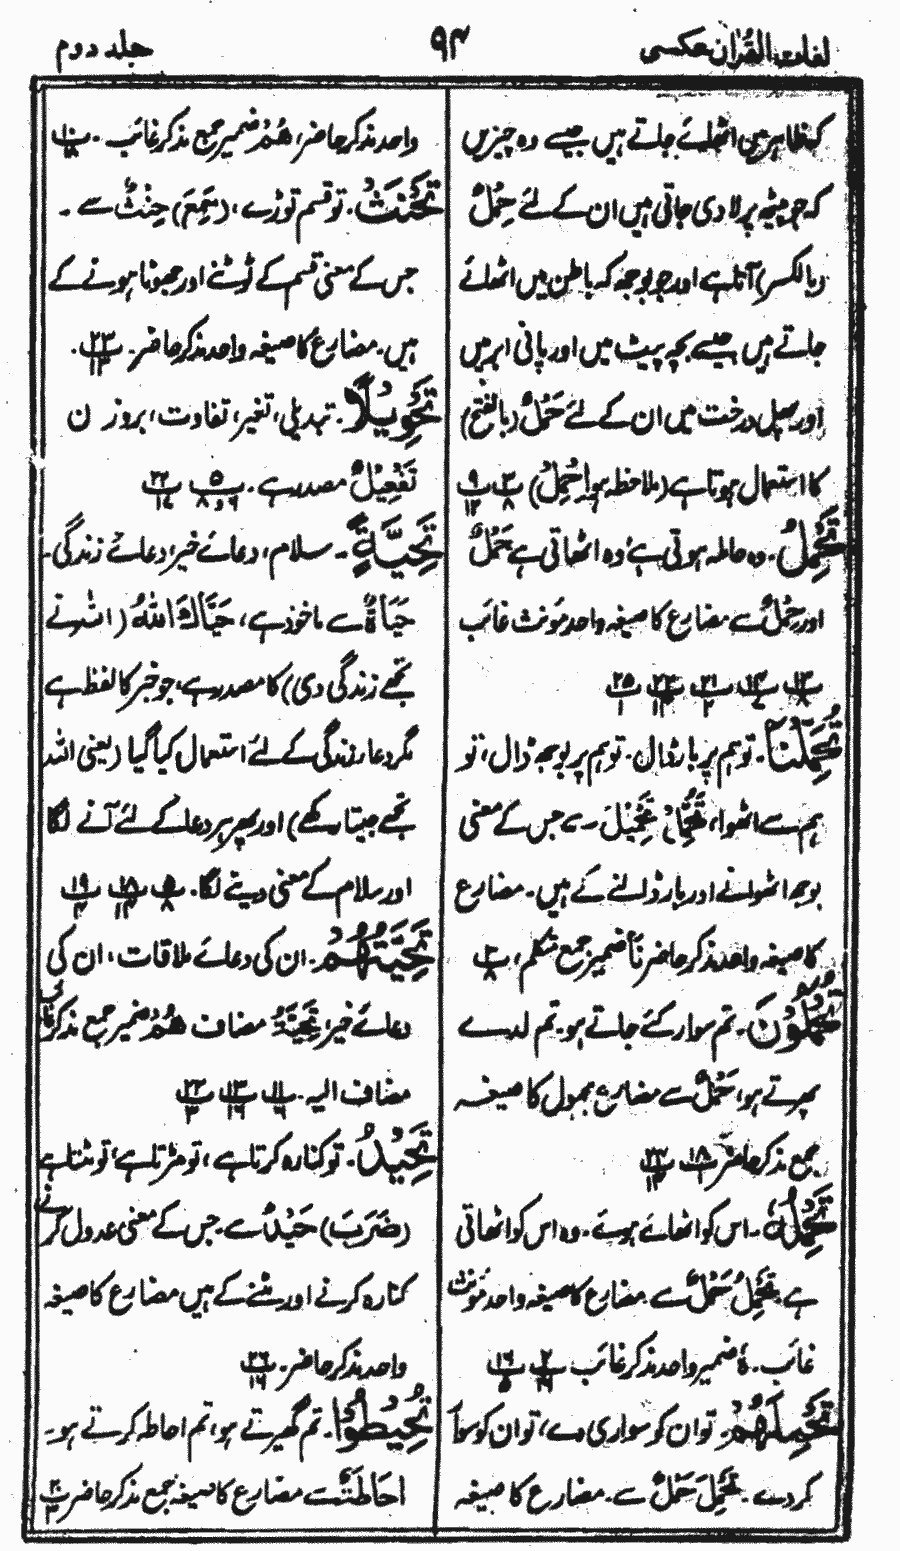 لغات القرآن عکسی
۹۴
جلد دوم
کہ ظاہر میں اٹھائے جاتے ہیں جیسے وہ چیزیں
کہ جو پیٹھ پر لادی جاتی ہیں ان کے لئے حِمْلٌ
(بالکسر) آتا ہے اور جو بوجھ کہ باطن میں اٹھائے
جاتے ہیں جیسے بچہ پیٹ میں اور پانی ابر میں
اور پھل درخت میں ان کے لئے حَمْلٌ (بالفتح)
کا استعمال ہوتا ہے (ملاحظہ ہو اِحْمِلْ) پ۳ ۸ پ۹ ۱۲
تَحْمِلُ۔ وہ حاملہ ہوتی ہے، وہ اٹھاتی ہے حَمْلٌ
اور حِمْلٌ سے مضارع کا صیغہ واحد مؤنث غائب
پ۱۳ ۸ پ۱۴ ۷ پ۲۱ ۲ پ۲۲ ۱۴ پ۲۵ ۱
تُحَمِّلْنَا۔ تو ہم پر بار ڈال۔ تو ہم پر بوجھ ڈال، تو
ہم سے اٹھوا، تُحَمِّلْ، تَحْمِیْلٌ سے جس کے معنی
بوجھ اٹھوانے اور بار ڈالنے کے ہیں۔ مضارع
کا صیغہ واحد مذکر حاضر نَا ضمیر جمع متکلم، پ۳ ۸
تُحْمَلُوْنَ۔ تم سوار کئے جاتے ہو۔ تم لدے
پھرتے ہو، حَمْلٌ سے مضارع مجہول کا صیغہ
جمع مذکر حاضر پ۱۸ ۲ پ۲۴ ۱۴
تَحْمِلُهٗ۔ اس کو اٹھائے ہوئے۔ وہ اس کو اٹھاتی
ہے۔ تَحْمِلُ حَمْلٌ سے مضارع کا صیغہ واحد مؤنث
غائب۔ ہٗ ضمیر واحد مذکر غائب پ۲ ۱۶ پ۱۶ ۵
تَحْمِلَهُمْ۔ تو ان کو سواری دے، تو ان کو سوار
کر دے۔ تَحْمِلَ حَمْلٌ سے۔ مضارع کا صیغہ
واحد مذکر حاضر، هُمْ ضمیر جمع مذکر غائب۔ پ۱۰ ۱۸
تَحْنَثْ۔ تو قسم توڑے، (سَمِعَ) حِنْثٌ سے۔
جس کے معنی قسم کے ٹوٹنے اور جھوٹا ہونے کے
ہیں۔ مضارع کا صیغہ واحد مذکر حاضر۔ پ۲۳ ۱۳۔
تَحْوِیْلًا۔ تبدیلی، تغیر، تفاوت، بروزن
تَفْعِیْلٌ مصدر ہے۔ پ۱۵ ۶ و ۸ پ۲۲ ۱۷
تَحِیَّةٍ۔ سلام، دعائے خیر، دعائے زندگی۔
حَیَاةٌ سے ماخوذ ہے، حَیَّاكَ اللّٰهُ (اللہ نے
تجھے زندگی دی) کا مصدر ہے، جو خبر کا لفظ ہے
مگر دعاء زندگی کے لئے استعمال کیا گیا (یعنی اللہ
تجھے جیتا رکھے) اور پھر ہر دعا کے لئے آنے لگا
اور سلام کے معنی دینے لگا۔ پ۵ ۸ پ۱۸ ۱۴ پ۱۹ ۴
تَحِیَّتُهُمْ۔ ان کی دعائے ملاقات، ان کی
دعائے خیر، تَحِیَّةُ مضاف هُمْ ضمیر جمع مذکر غائب
مضاف الیہ۔ پ۱۱ ۶ پ۱۳ ۱۶ پ۲۲ ۳
تَحِیْدُ۔ تو کنارہ کرتا ہے، تو مڑتا ہے، تو ہٹتا ہے
(ضَرَبَ) حَیْدٌ سے۔ جس کے معنی عدول کرنے
کنارہ کرنے اور ہٹنے کے ہیں مضارع کا صیغہ
واحد مذکر حاضر۔ پ۲۶ ۱۶
تُحِیْطُوْا۔ تم گھیرتے ہو، تم احاطہ کرتے ہو۔
اِحَاطَةٌ سے مضارع کا صیغہ جمع مذکر حاضر پ۲۰ ۳